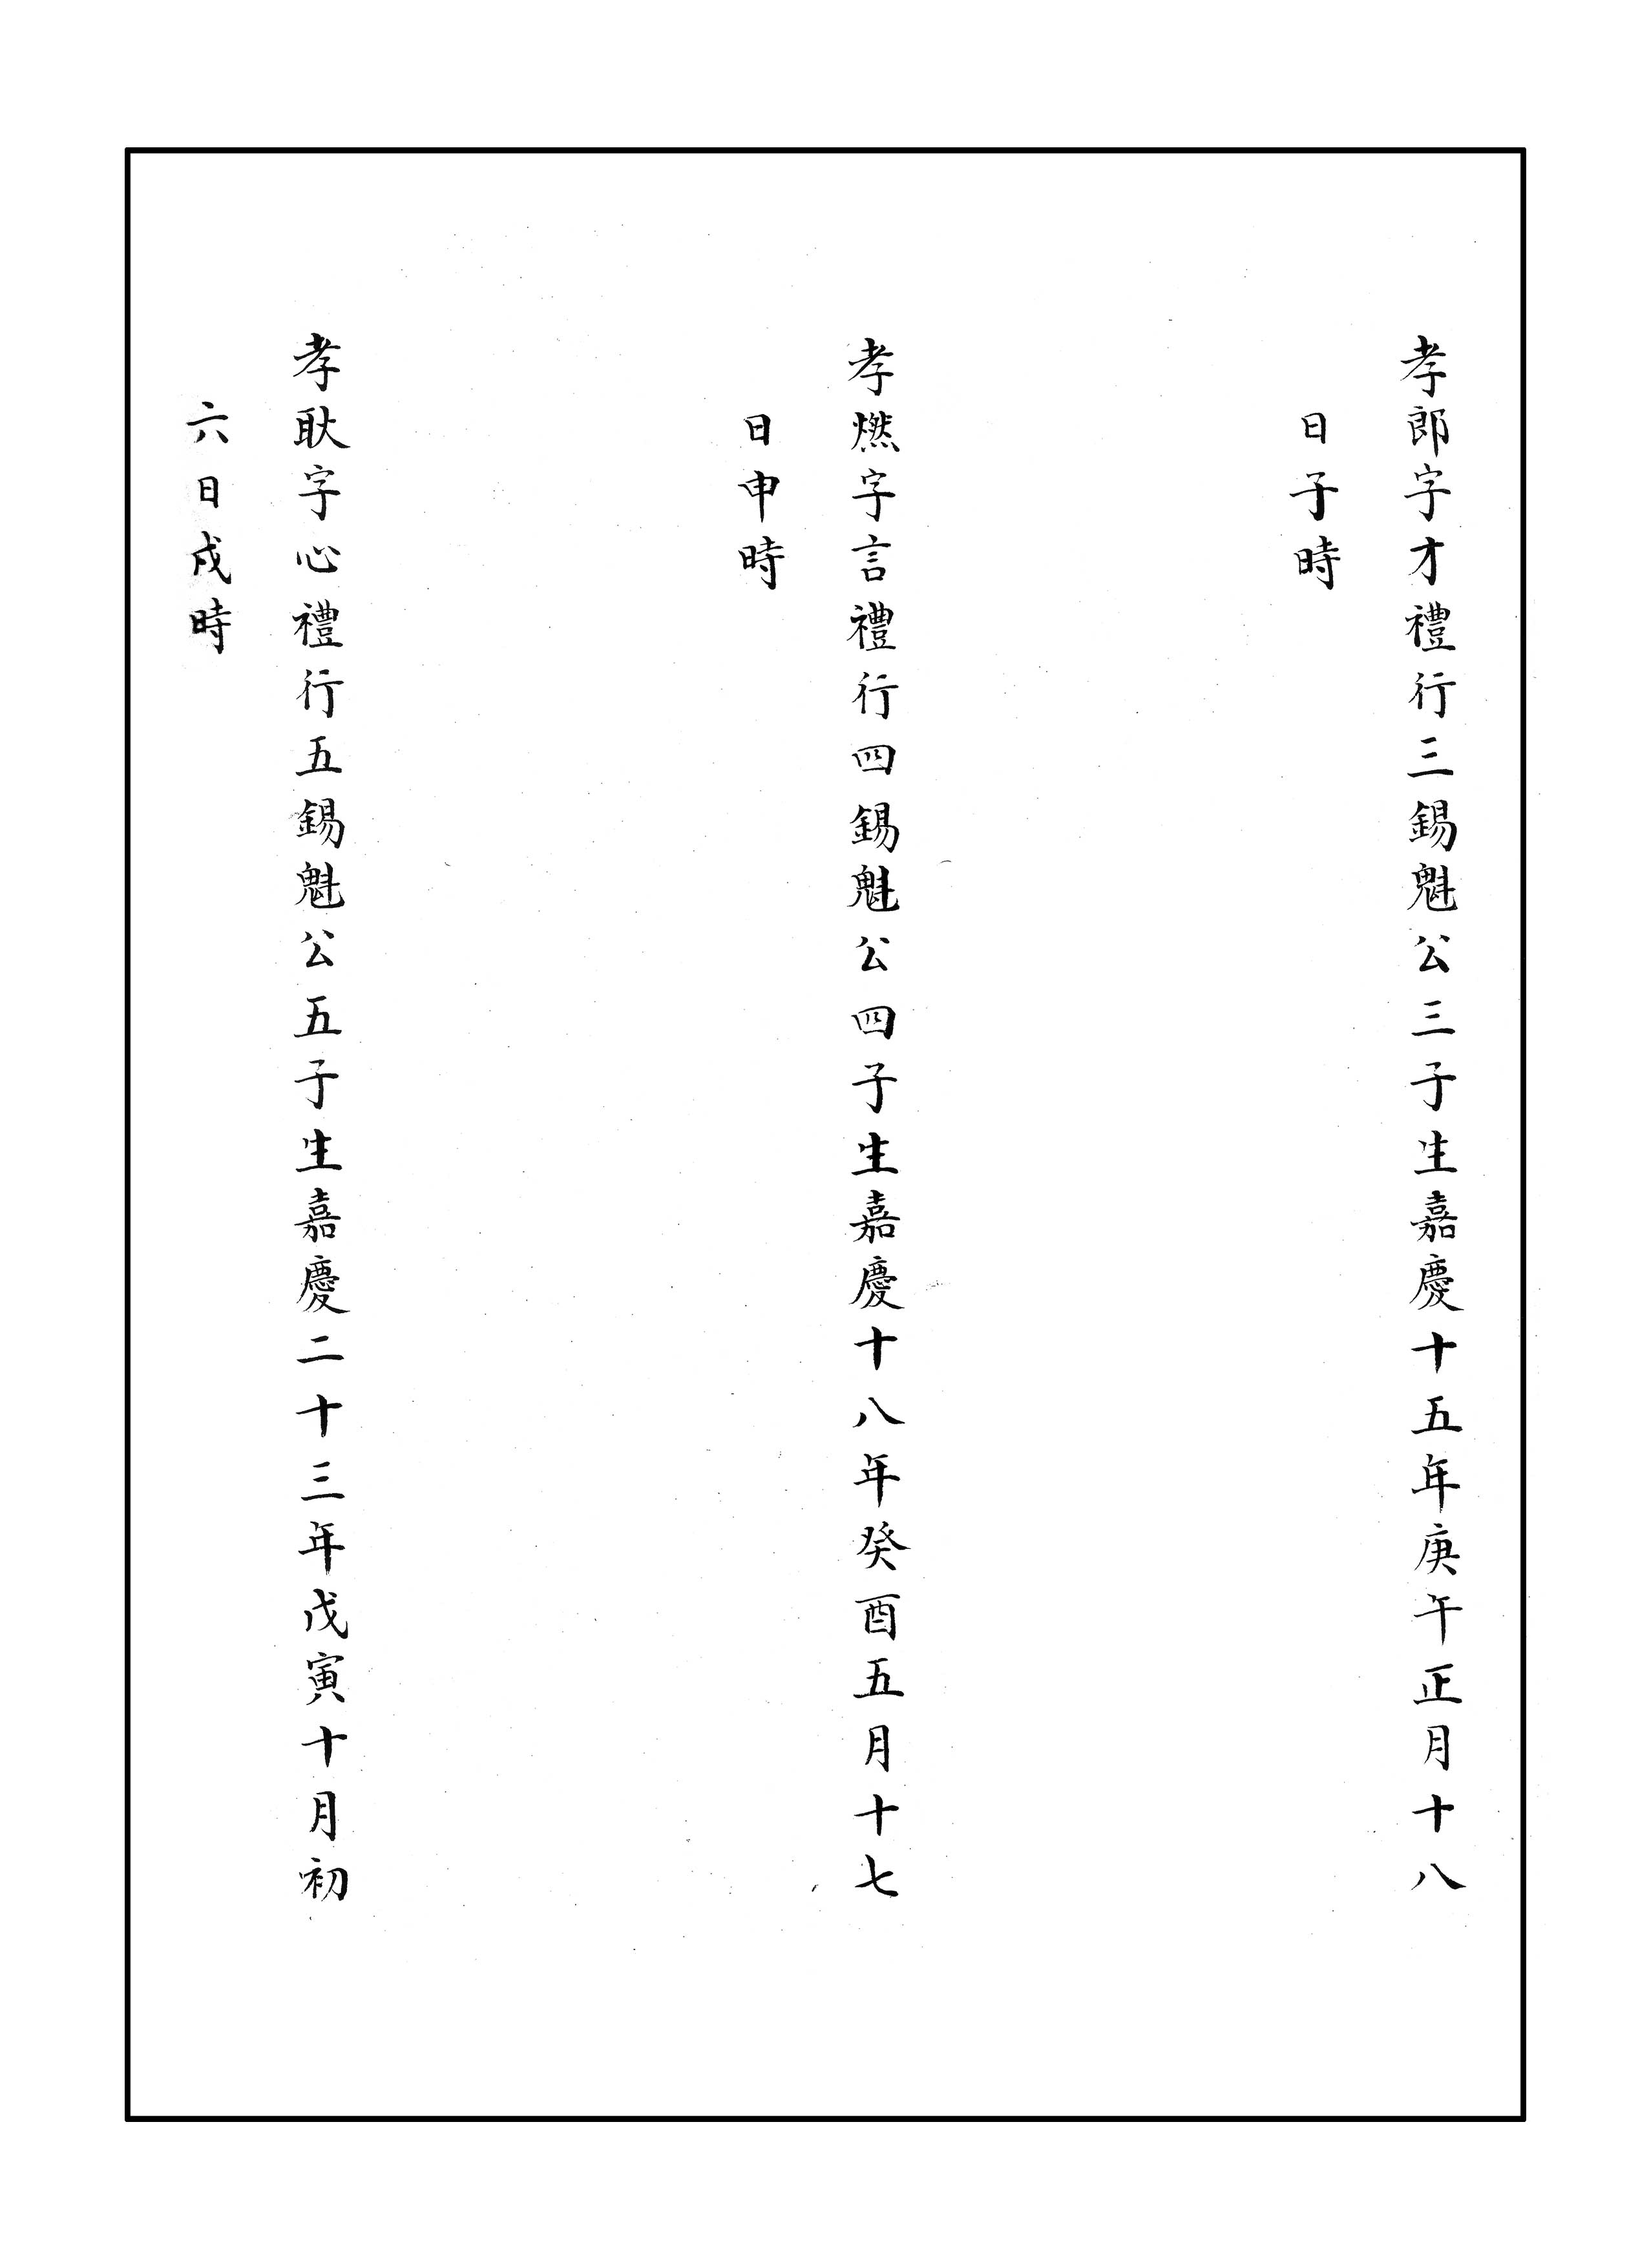 孝郎字才禮行三錫魁公三子生嘉慶十五年庚午正月十八
日子時
孝燃字言禮行四錫魁公四子生嘉慶十八年癸酉五月十七
日申時
孝耿字心禮行五錫魁公五子生嘉慶二十三年戊寅十月初
六日戌時